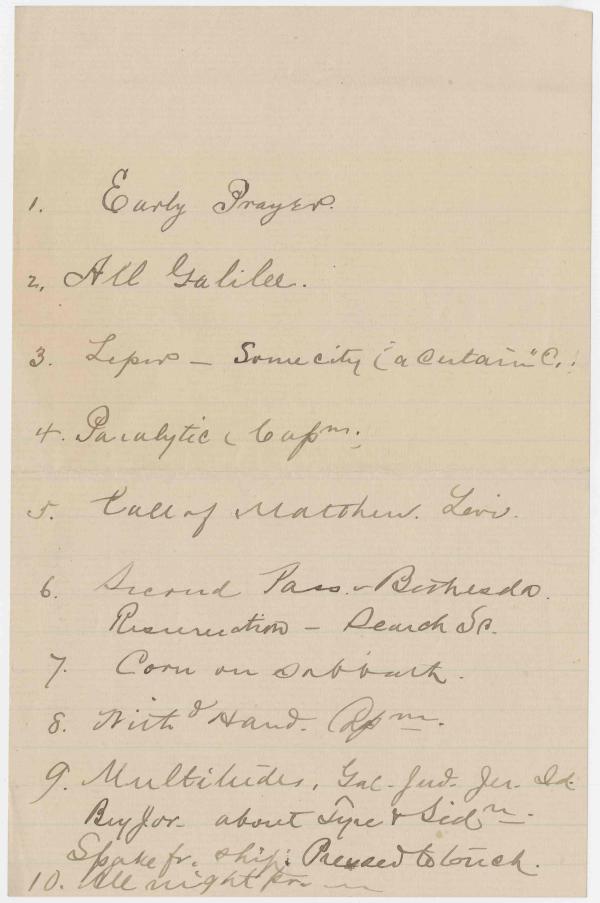 1. Early Prayer.
2. All Galilee.
3. Lepers — Some city ("a Certain" C.
4. Paralytic (Capm.
5. Call of Matthew. Levi.
6. Second Pass. - Bethesda.
Resurrection — Search Sc.
7. Corn on Sabbath.
8. With'd Hand. Cpm.
9. Multitudes, Gal. Jud. Jer. Id.
Bey Jor. about Tyre & Sidn.
Spake fr. ship: Pressed to touch.
10. All night pr.